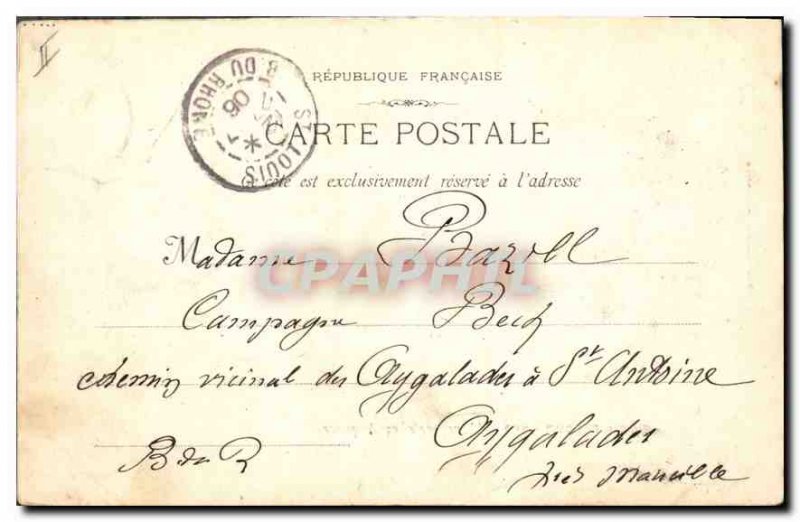 II
ST LOUIS
B. DU RHONE
06
RÉPUBLIQUE FRANÇAISE
CARTE POSTALE
Ce côté est exclusivement réservé à l'adresse
Madame Bazoll
CPAPHIL
Campagne Bech
chemin vicinal des Aygalades à St Antoine
Aygalades
B du R
près Marseille